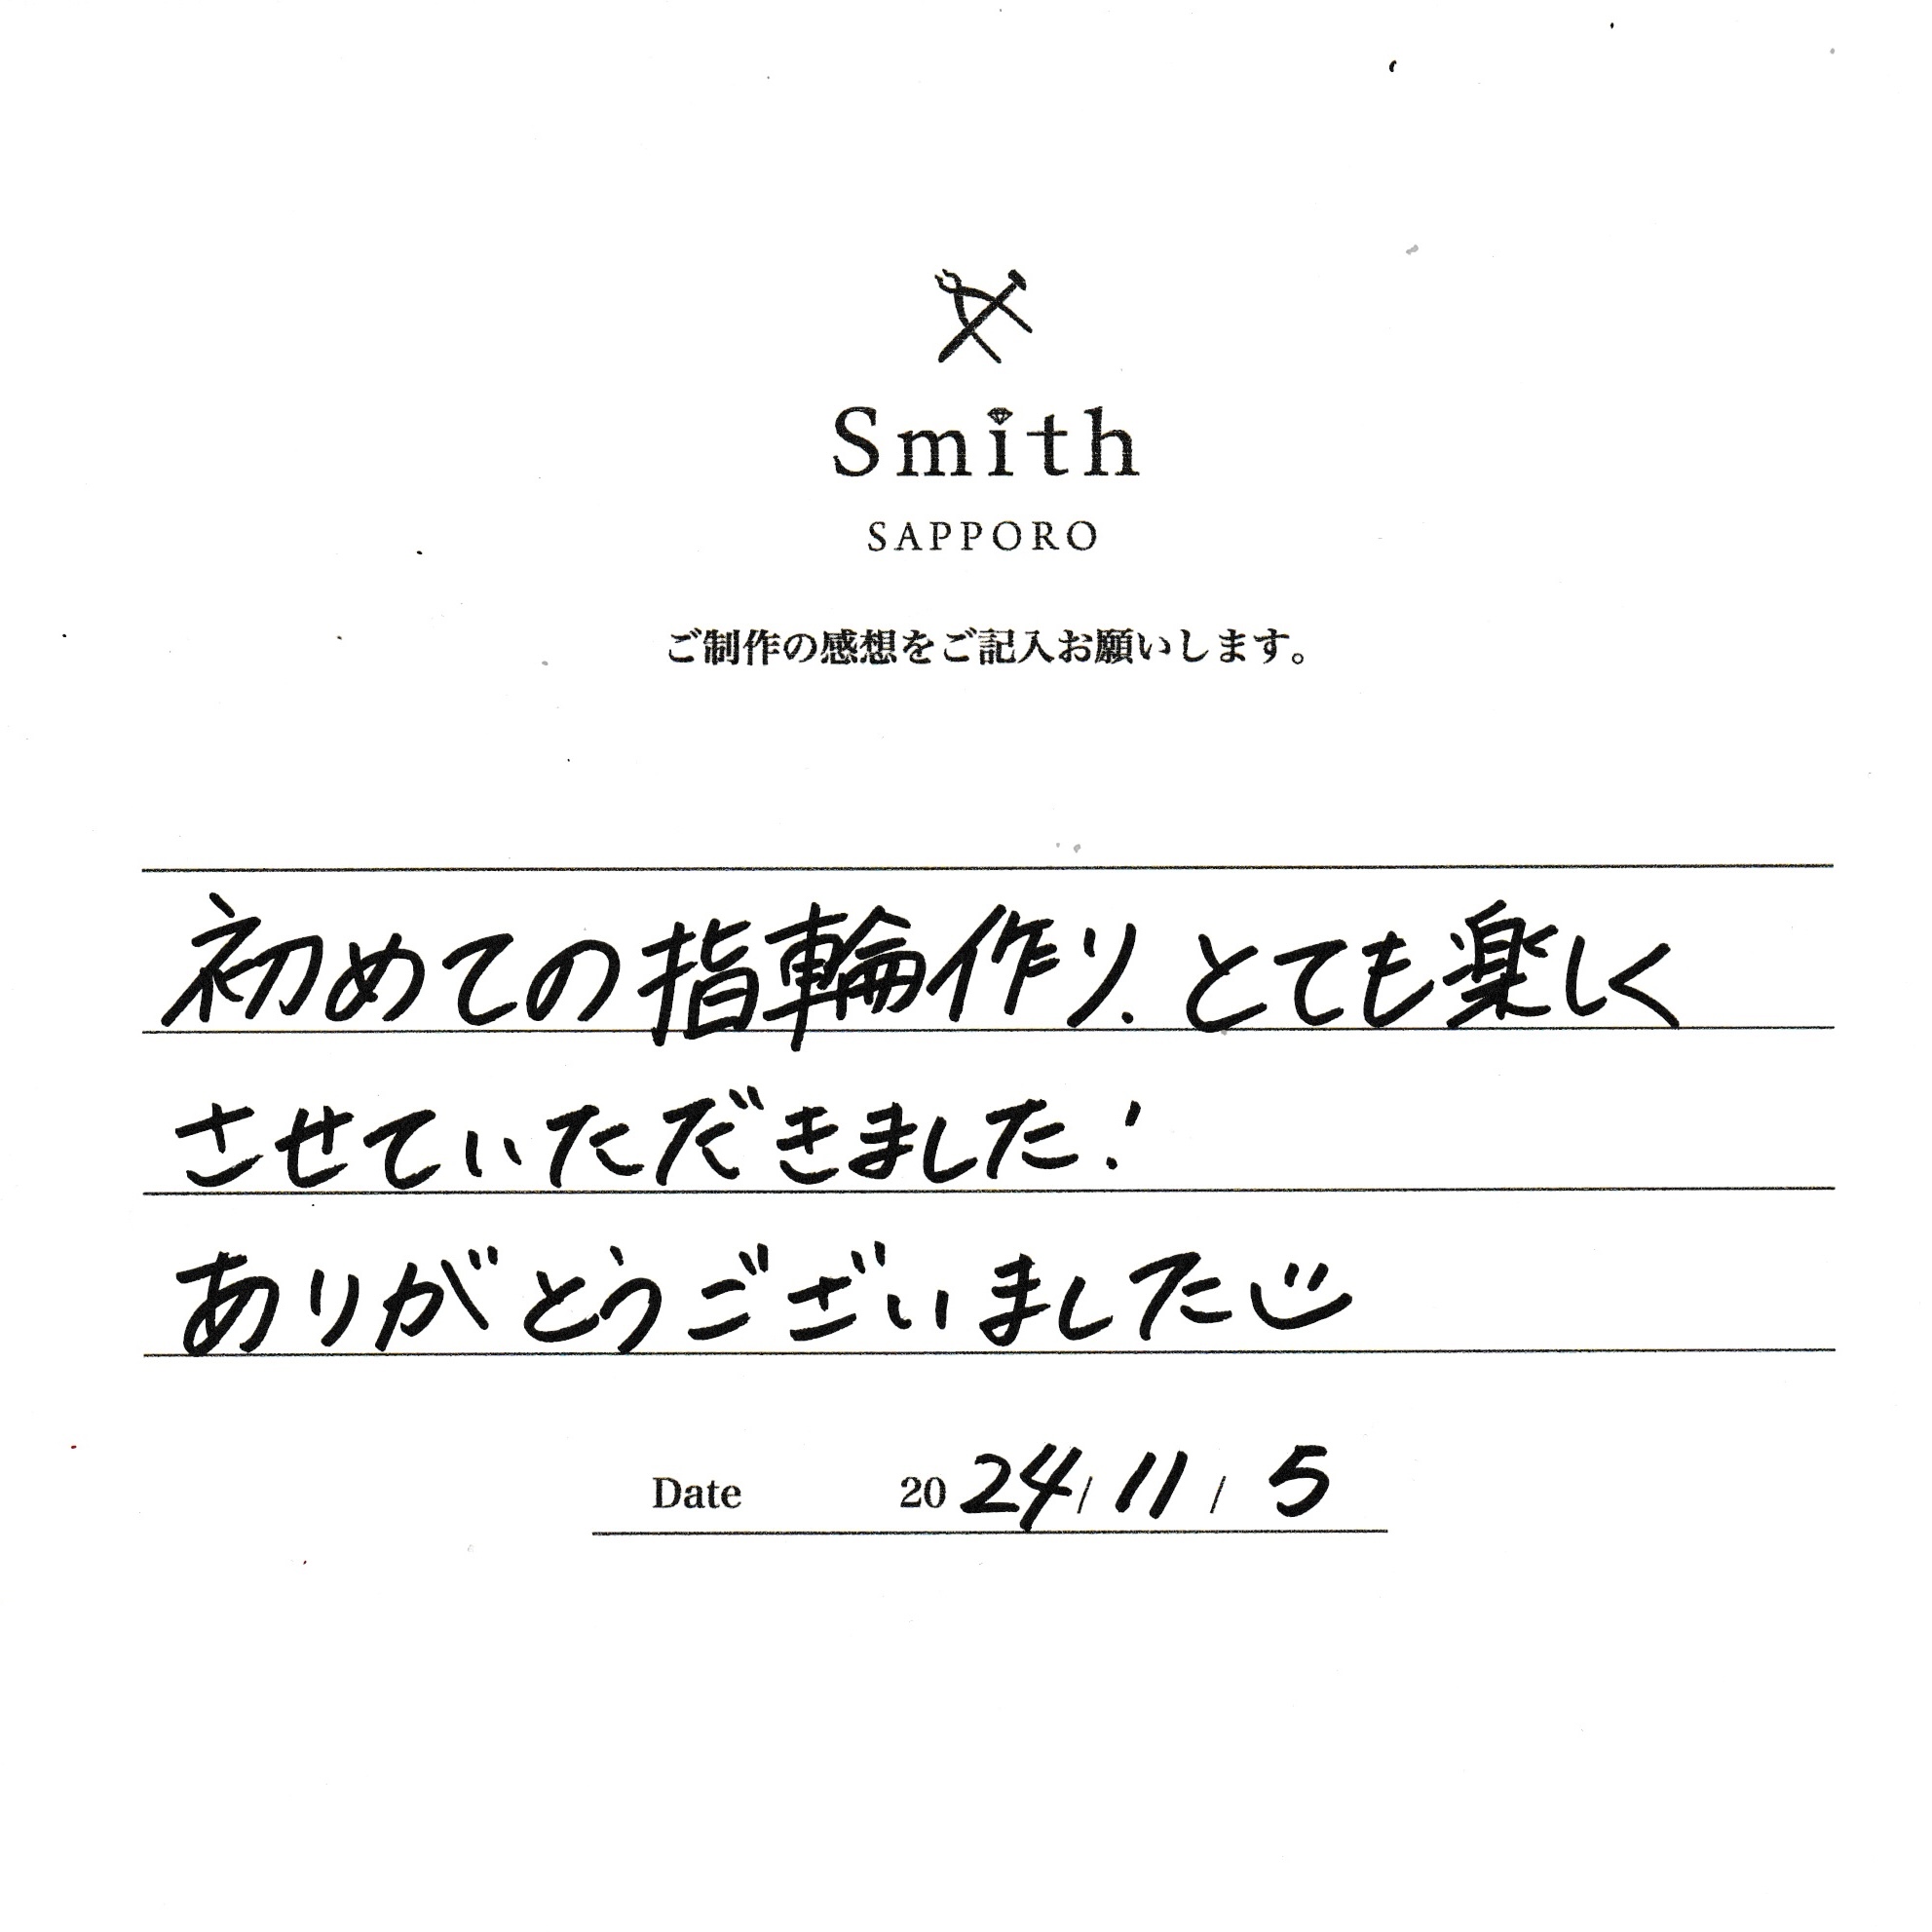 Smith
SAPPORO
ご制作の感想をご記入お願いします。
初めての指輪作り、とても楽しく
させていただきました!
ありがとうございました
Date 2024/11/5